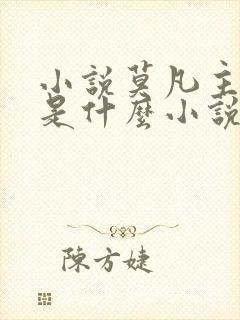 小說莫凡主
是什麼小說
陳方婕